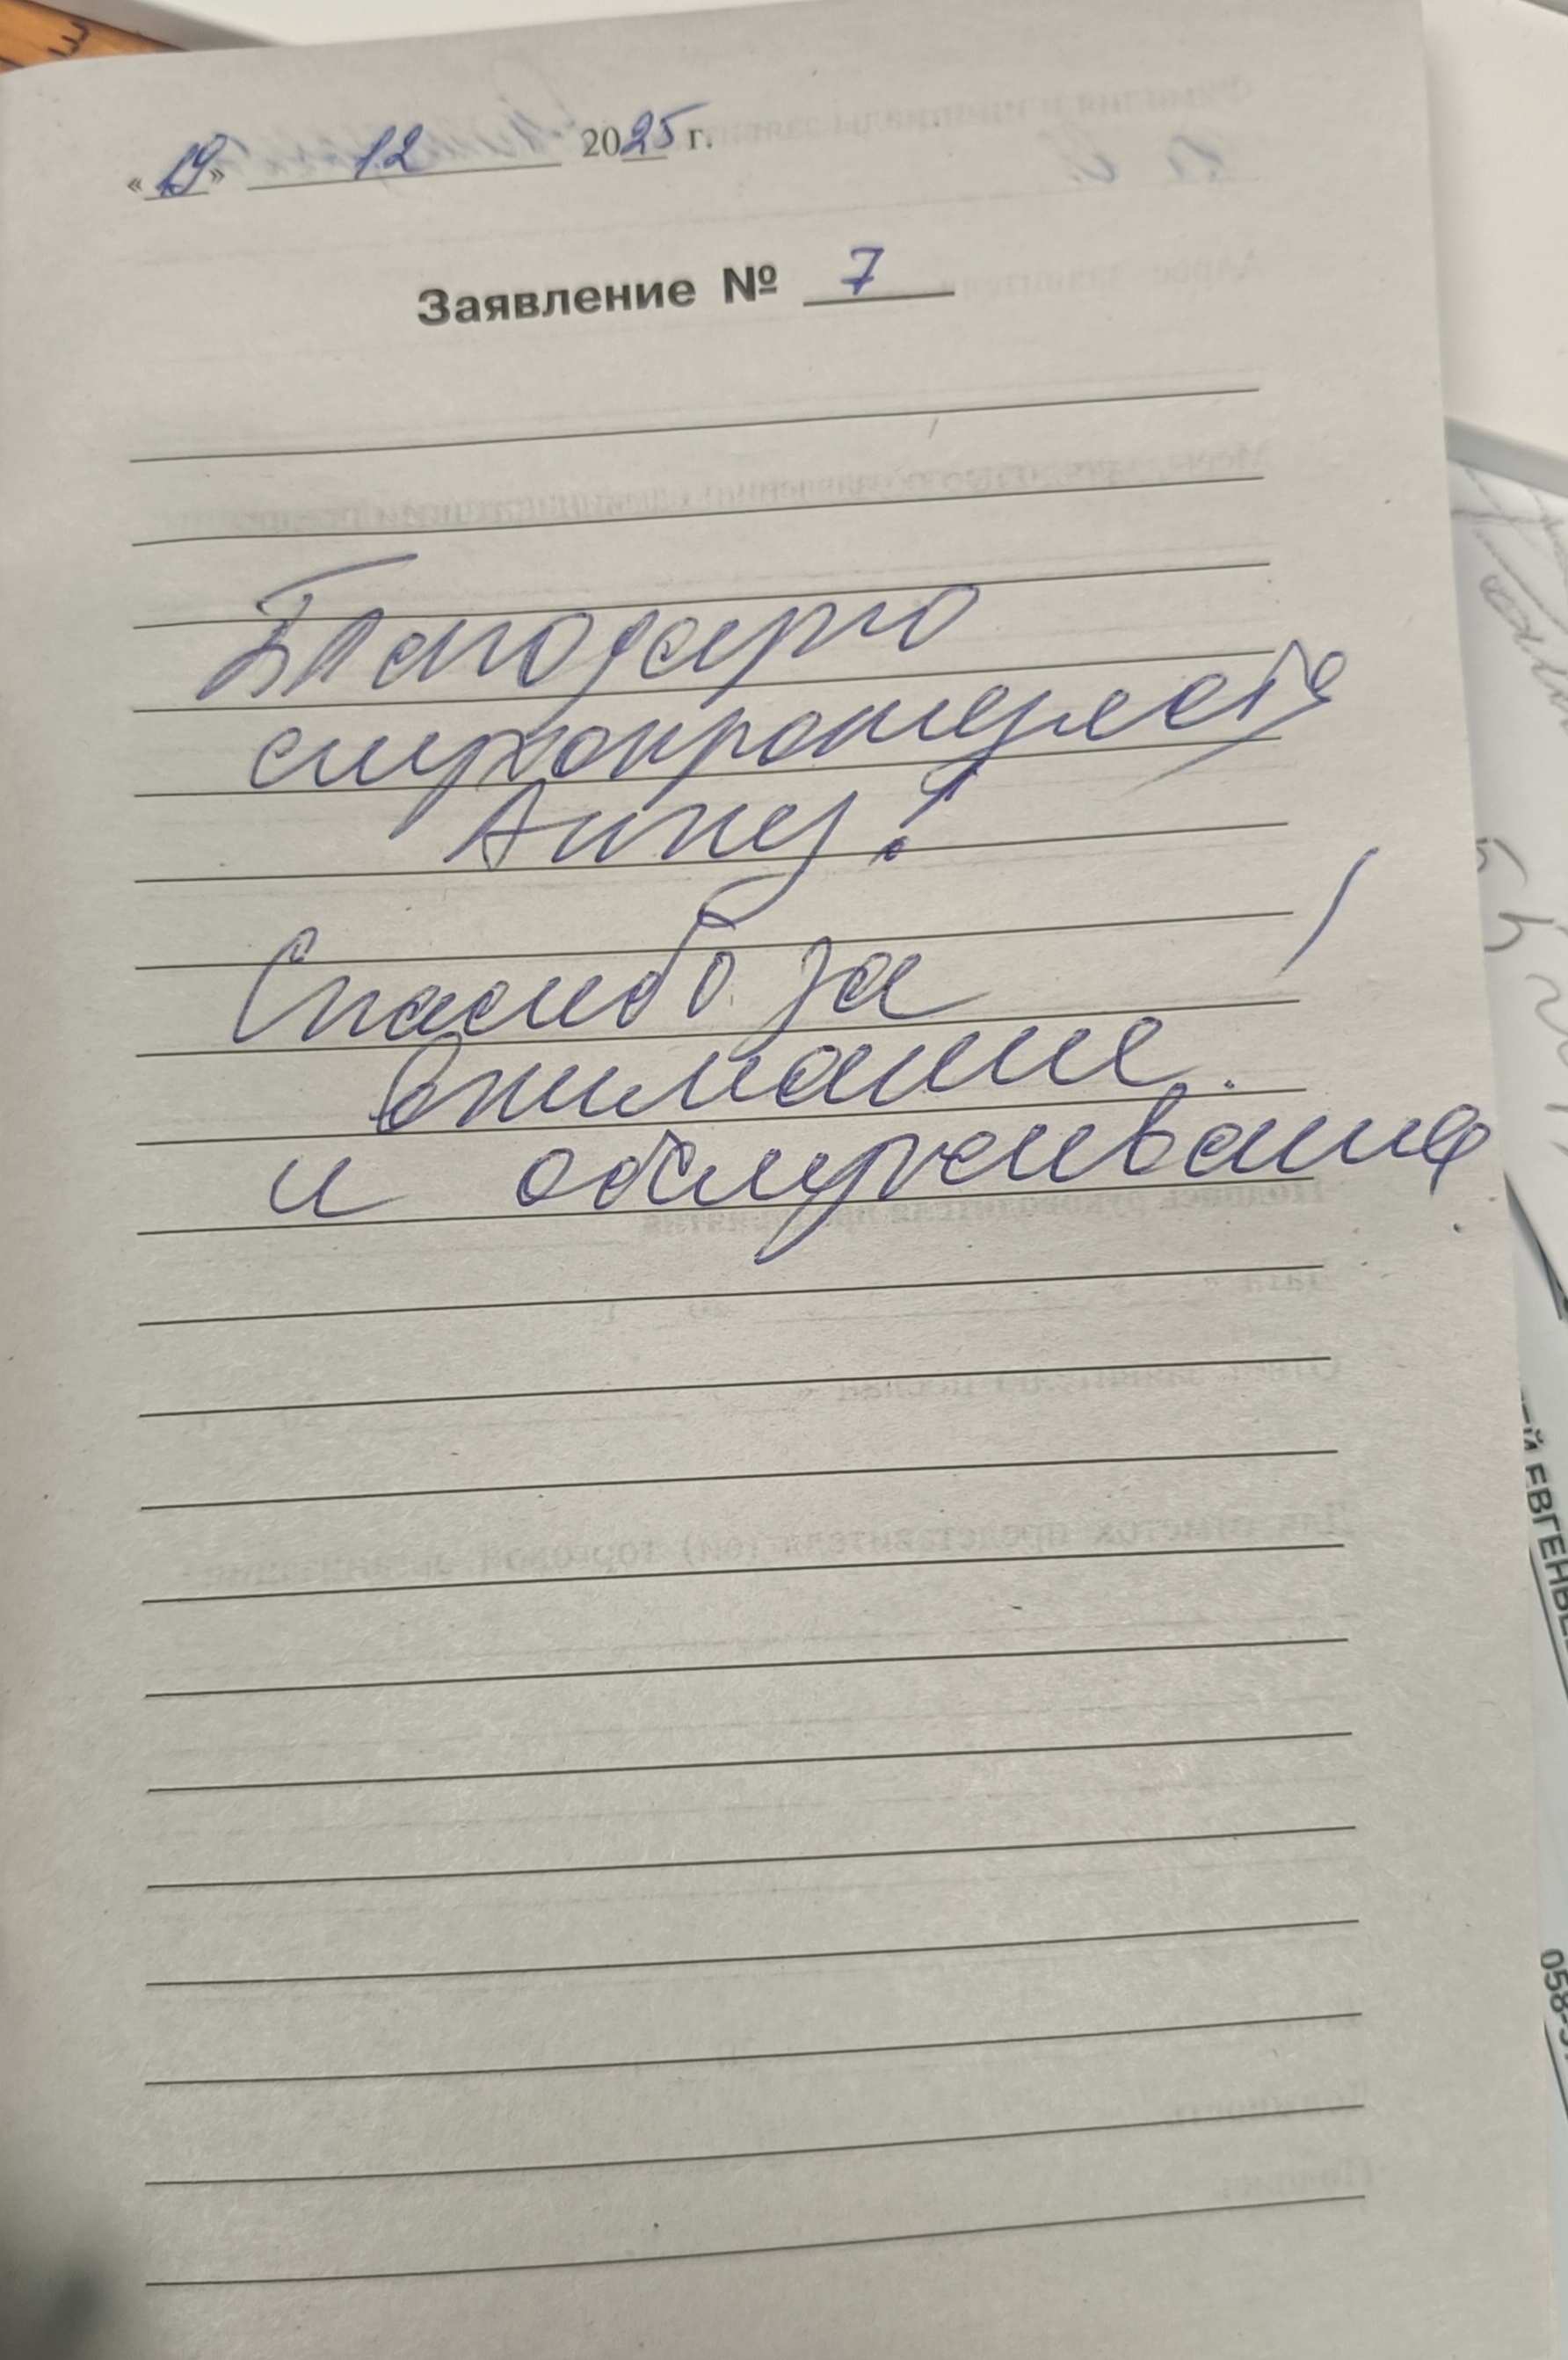 «19» 12 2025 г.
Заявление № 7
Благодарю
слухопротезиста
Анну!
Спасибо за
внимание
и обслуживание
ЕЙ ЕВГЕНЬЕ
058-5